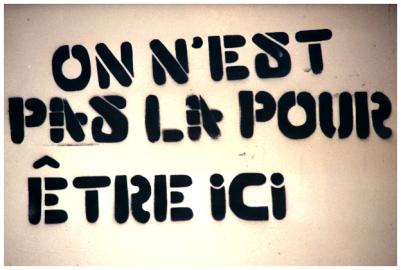 ON N'EST
PAS LA POUR
ÊTRE iCi